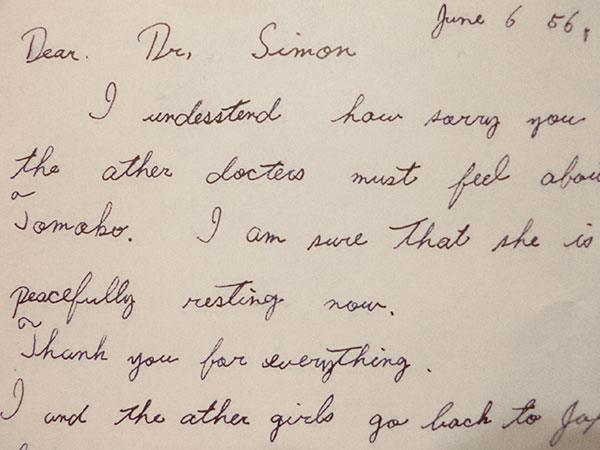 June 6 56,
Dear. Dr, Simon
I undesstend how sorry you
the ather docters must feel abou
Tomoko. I am sure that she is
peacefully resting now.
Thank you for everything.
I and the ather girls go back to Jap